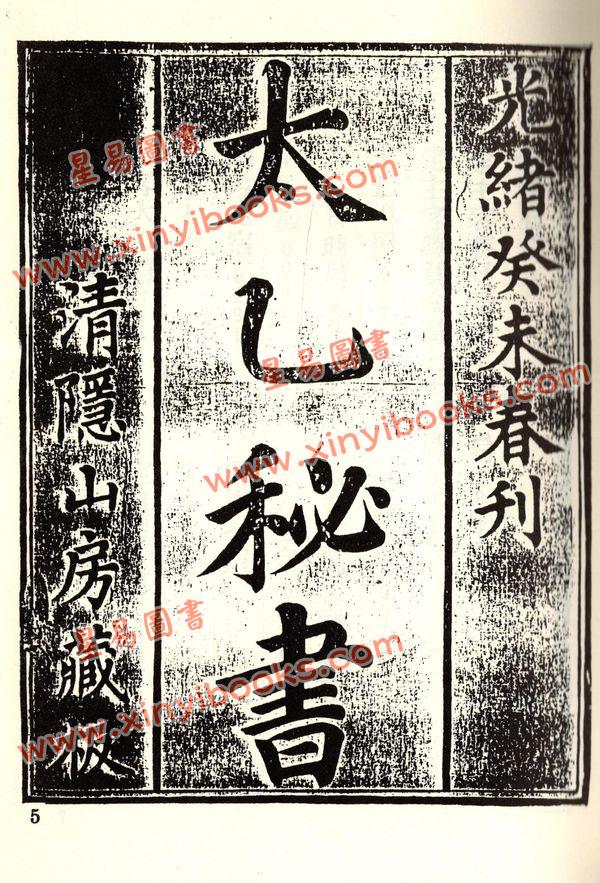 光緒癸未春刊
大乙秘書
清隱山房藏板
星易圖書
www.xinyibooks.com
星易圖書
www.xinyibooks.com
星易圖書
www.xinyibooks.com
5